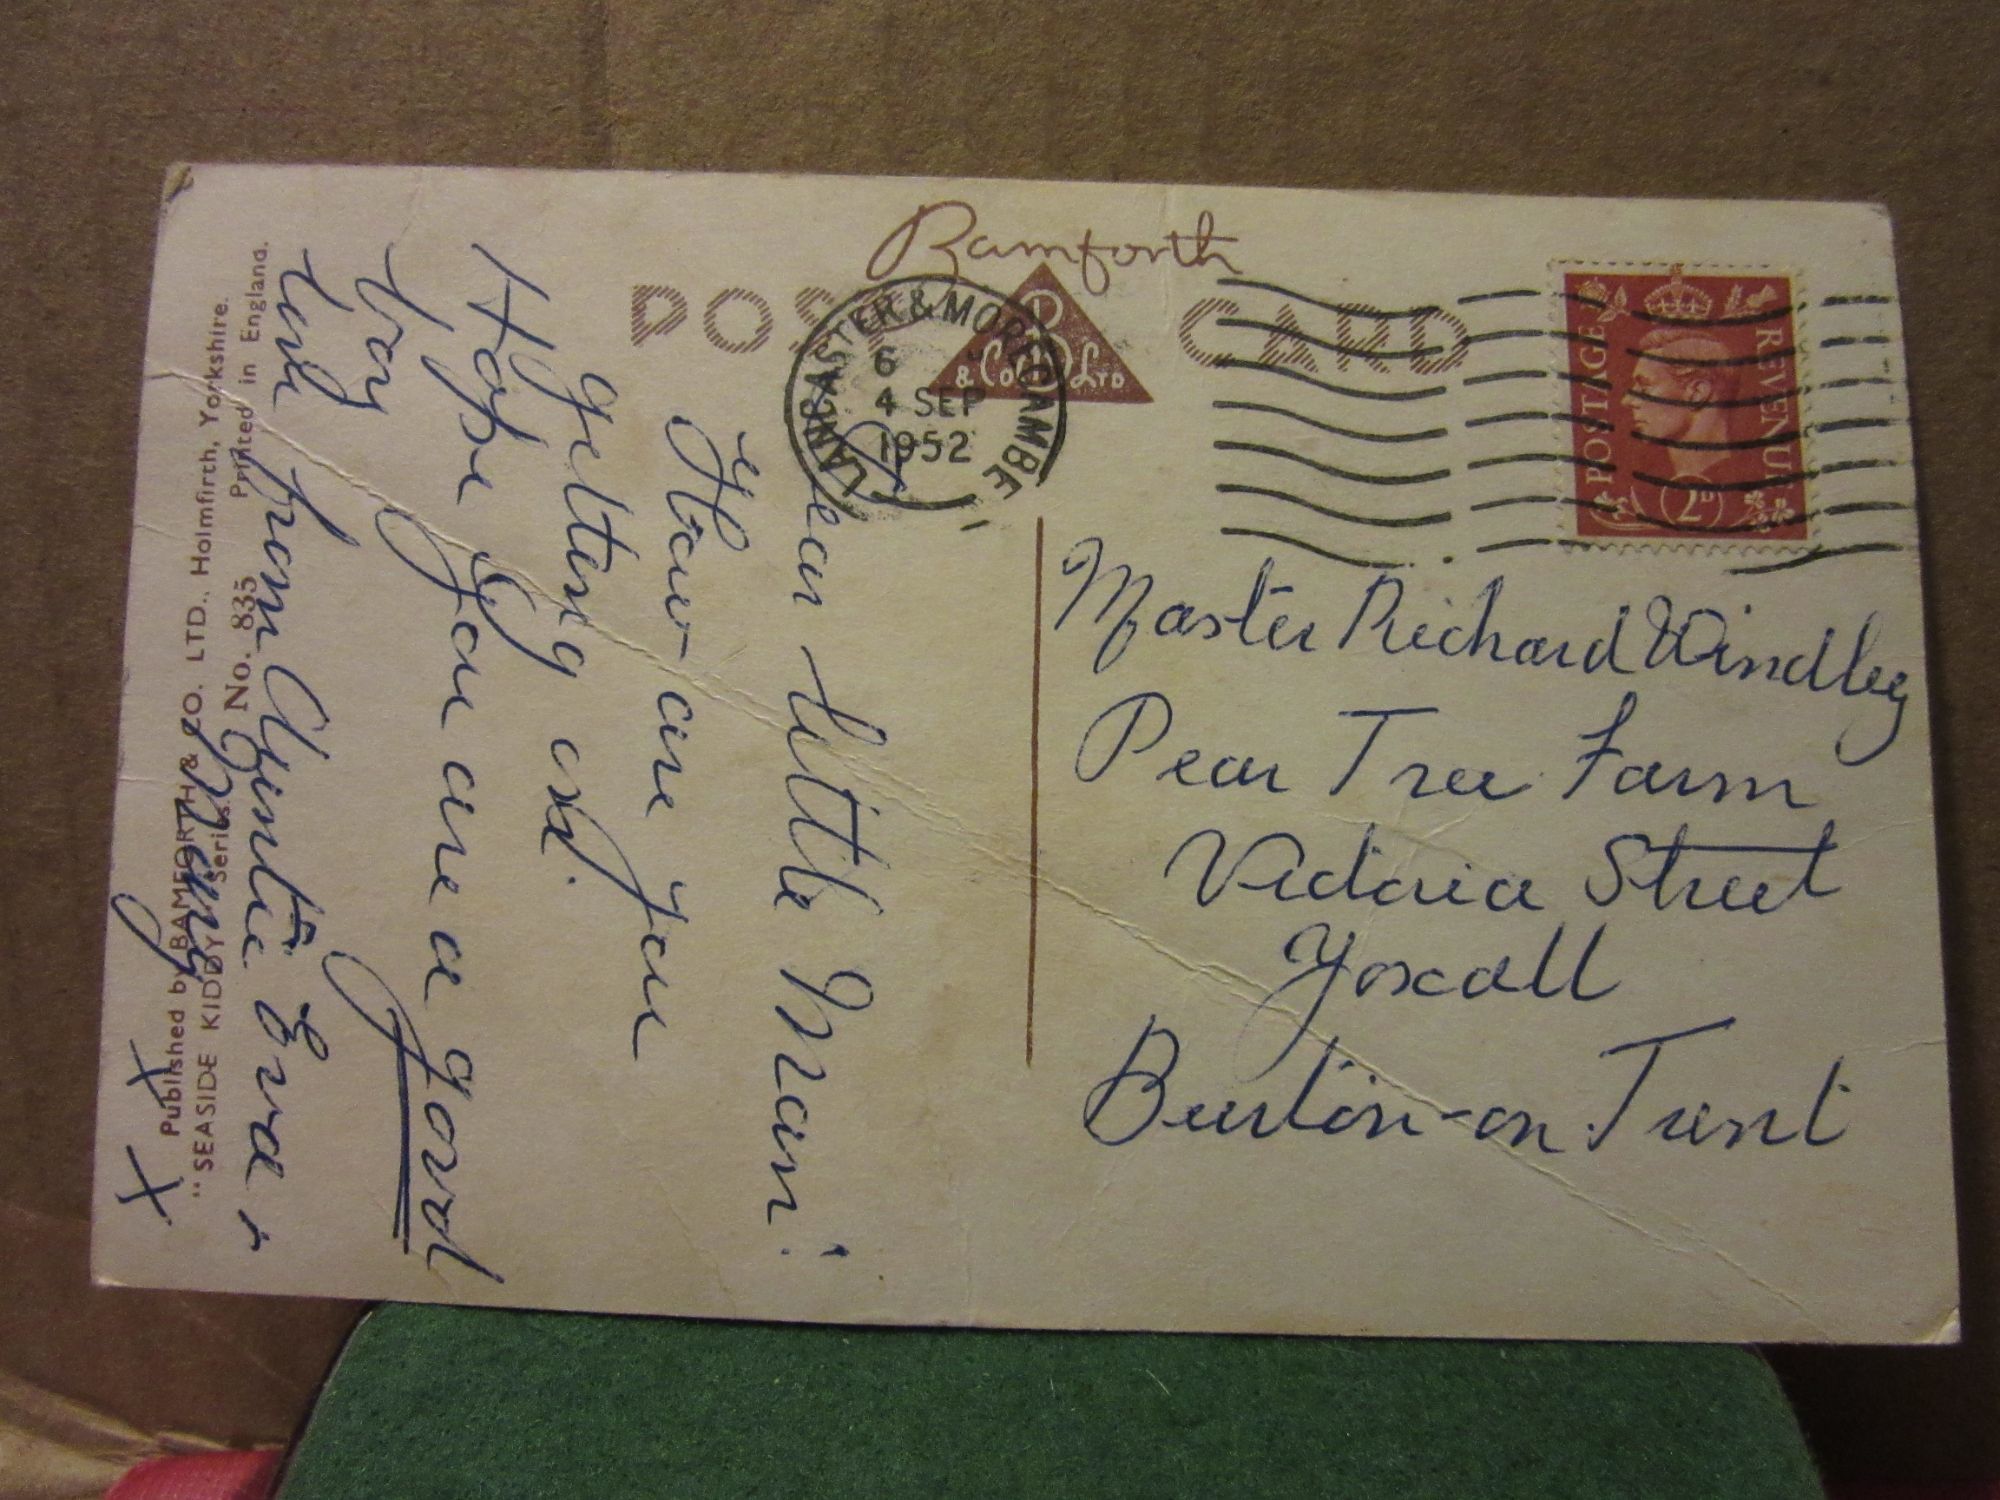 Bamforth
POST CARD
& Co Ltd
LANCASTER & MORECAMBE
6
4 SEP
1952
POSTAGE REVENUE
2D
Master Richard Windley
Pear Tree Farm
Victoria Street
Yoxall
Burton-on-Trent
Dear little Man:
How are you
getting on.
Hope you are a good
boy
love from Auntie Eva &
X X
Published by BAMFORTH & CO. LTD., Holmfirth, Yorkshire.
"SEASIDE KIDDY" Series. No. 835 Printed in England.